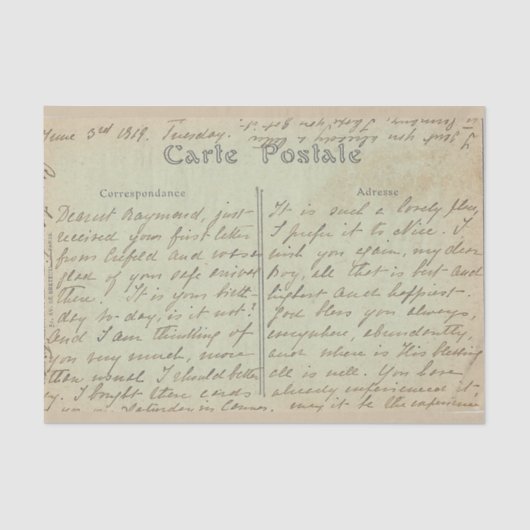 June 3rd 1919. Tuesday.
I sent you already a letter
Carte Postale
Correspondance
Adresse
Dearest Raymond, just
received your first letter
from Crefeld and was so
glad of your safe arrival
there. It is your birth-
day to-day, is it not?
And I am thinking of
you very much, more
than usual. I should better
I bought these cards
Saturday in Cannes.
It is such a lovely place,
I prefer it to Nice. I
wish you again, my dear
Boy, all that is best and
highest and happiest.
God bless you always,
everywhere, abundantly,
and where is His blessing
all is well. You have
already experienced it,
may it be the experience